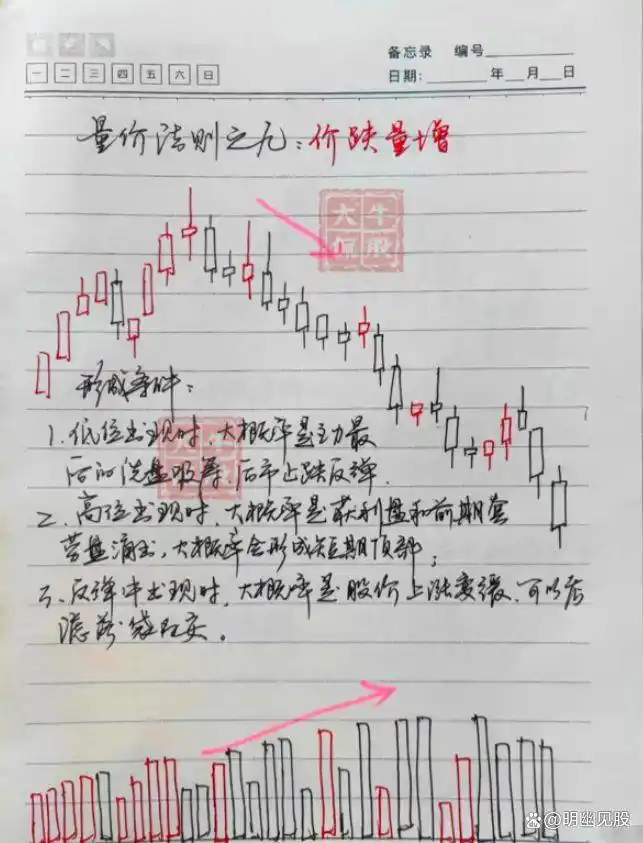 备忘录 编号
一 二 三 四 五 六 日
日期: 年 月 日
量价法则之九：价跌量增
大牛
侃股
形成条件：
1. 低位出现时，大概率是主力最
后的洗盘吸筹，后市止跌反弹．
2、高位出现时，大概率是获利盘和前期套
劳盘涌出，大概率会形成短期顶部；
3、反弹中出现时，大概率是股价上涨变缓，可以考
虑落袋为安．
@明幽见股